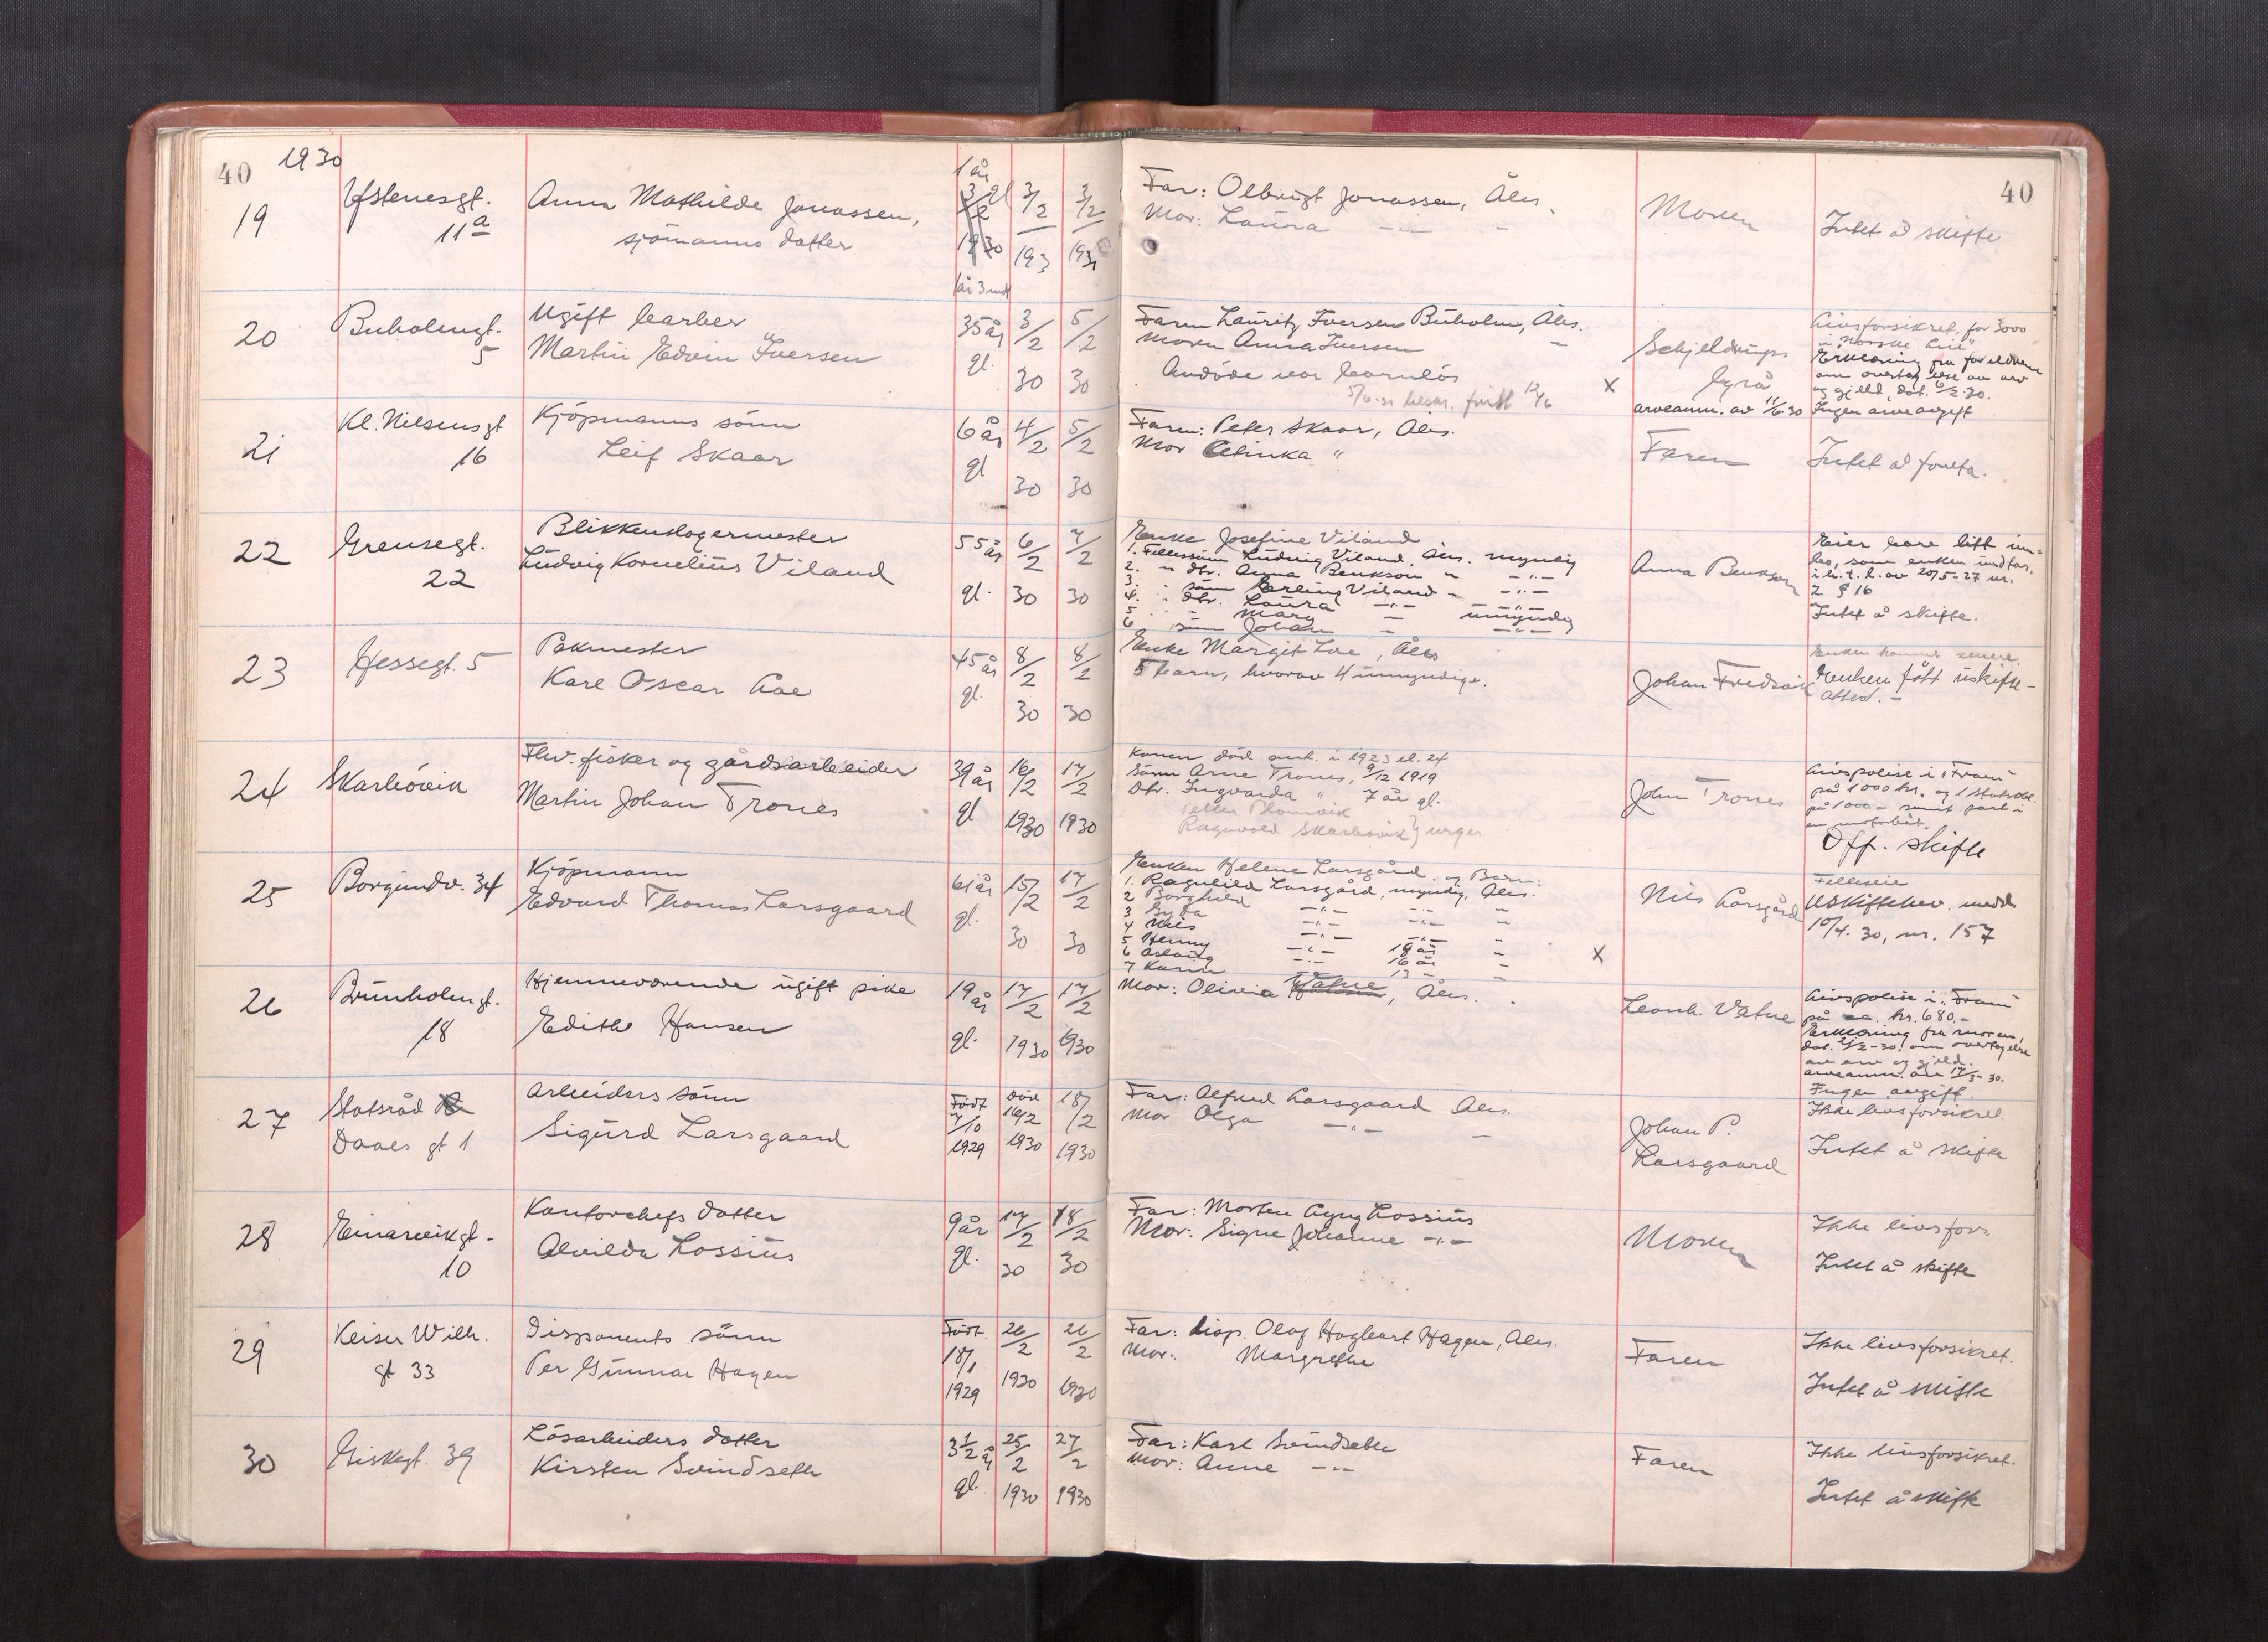 40 1930
19
Ystenesgt.
11 a
Anna Mathilde Jonassen,
sjømanns datter
1 år
3/2 gl
1930
1 år 3 md
3/2
193
3/2
193
20
Buholmgt.
5
Ugift barber
Martin Edvin Iversen
35 år
gl.
3/2
30
5/2
30
21
Kl. Nilsensgt
16
Kjøpmanns sønn
Leif Skaar
6 år
gl
4/2
30
5/2
30
22
Grensegt.
22
Blikkenslagermester
Ludvig Kornelius Viland
55 år
gl.
6/2
30
7/2
30
23
Hessegt. 5
Pakmester
Karl Oscar Loe
45 år
gl.
8/2
30
8/2
30
24
Skarbövik
Fhv. fisker og gårdsarbeider
Martin Johan Trones
39 år
gl
16/2
1930
17/2
1930
25
Borgundv. 34
Kjöpmann
Edvard Thomas Larsgaard
61 år
gl.
15/2
30
17/2
30
26
Brunholmgt.
18
Hjemmeværende ugift pike
Edith Hansen
19 år
gl.
17/2
1930
17/2
1930
27
Statsråd
Daaes gt 1
Arbeiders sönn
Sigurd Larsgaard
Födt
7/10
1929
Död
16/2
1930
18/2
1930
28
Einarvikgt.
10
Kontorchefs datter
Alvilda Lossius
9 år
gl.
17/2
30
18/2
30
29
Keiser Wilh.
gt 33
Disponents sönn
Per Gunnar Hagen
Födt
18/1
1929
26/2
1930
26/2
1930
30
Giskegt. 39
Lösarbeiders datter
Kirsten Svindseth
3 1/2 år
gl.
25/2
1930
27/2
1930
40
Far: Olbrigt Jonassen, Åles.
Mor: Laura -"- -
Moren
Intet å skifte
Faren Lauritz Iversen Buholm, Åles.
Moren Anna Iversen -
Avdöde var barnlös
x
Schjeldrups
byrå
arveanm. av 11/6-30
Livsforsikret for 3000
i "Norske Liv"
Erklæring fra foreldrene
om overtagelse av arv
og gjeld, dat. 6/2-30.
Ingen arveavgift
Faren: Peter Skaar, Åles.
Mor Alinka "
Faren
Intet å foreta.
Enke Josefine Viland
1. Fellessönn Ludvig Viland, Åles. myndig
2. " dtr. Anna Benkson " -"-
3. " sønn Erling Viland " -"-
4. " dtr. Laura -"- -"-
5 " " Mary - umyndig
6 " sønn Johan - -"-
Anna Benkson
Eier bare litt inn-
bo, som enken undtar
i h. t. l. av 20/5-27 nr.
2 § 16
Intet å skifte.
Enke Margit Loe, Åles
5 barn, hvorav 4 umyndige.
Johan Fredsvik
Enken kommer senere.
Enken fått uskifte-
attest. -
Konen död omt. i 1923 el. 24
Sönn Arne Trones, 9/12 1919
Dtr. Ingvarda " 7 år gl.
Ragnvald Skarbövik } verger
John Trones
Livspolise i "Fram"
på 1000 kr. og 1 Statsobl.
på 1000 - samt part i
en motorbåt.
Off. skifte
Enken Helene Larsgård og Barn:
1. Ragnhild Larsgård, myndig, Åles.
2 Borghild -"- -"- -
3 Gyda -"- -"- -
4 Nils -"- -"- -
5 Henny -"- 18 år -
6 Aslaug -"- 16 år -
7 Karin -"- 13 - -
x
Nils Larsgård
Felleseie
Uskiftebev. medd.
10/4. 30, nr. 157
Mor: Olivia Vatne, Åles.
Leonh. Vatne
Livspolise i "Fram"
på ca. kr. 680.-
Erklæring fra moren,
dat. /2-30, om overtagelse
av arv og gjeld.
arveanm. av 17/3-30.
Ingen avgift.
Far: Alfred Larsgaard Åles.
Mor Olga -"- -
Johan P.
Larsgaard
Ikke livsforsikret.
Intet å skifte
Far: Morten Lossius
Mor: Signe Johanne -"-
Moren
Ikke livsfors.
Intet å skifte
Far: disp. Olaf Hagbart Hagen, Åles.
Mor: Margrethe
Faren
Ikke livsforsikret.
Intet å skifte
Far: Karl Svindseth
Mor: Anne -"-
Faren
Ikke livsforsikret.
Intet å skifte